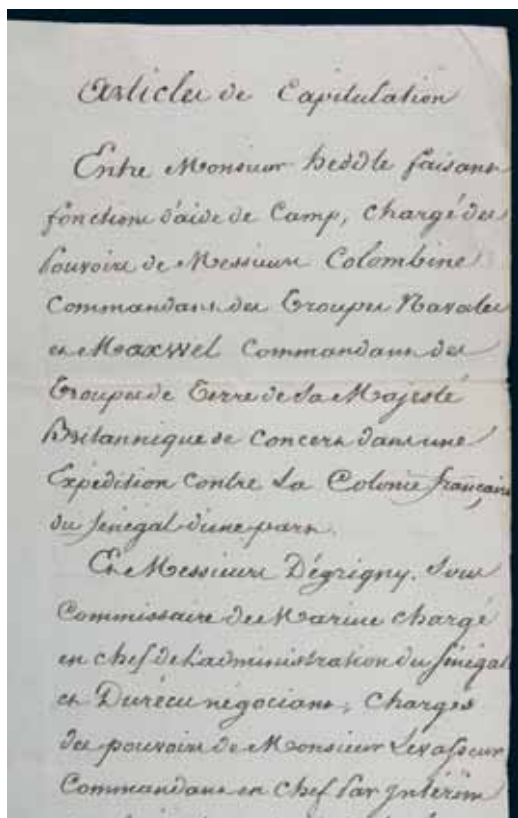 Articles de Capitulation
Entre Monsieur heddle faisant
fonctions d'aide de Camp, chargé des
Pouvoirs de Messieurs Colombine
Commandant des Troupes Navales
et Maxwel Commandant des
Troupes de Terre de Sa Majesté
Britannique de Concert dans une
Expédition Contre La Colonie française
du Sénégal d'une part.
Et Messieurs Dégrigny. Sous
Commissaire de Marine chargé
en chef de L'administration du Sénégal
et Durécu négociant, Chargés
des pouvoirs de Monsieur Levasseur
Commandant en chef Par Intérim